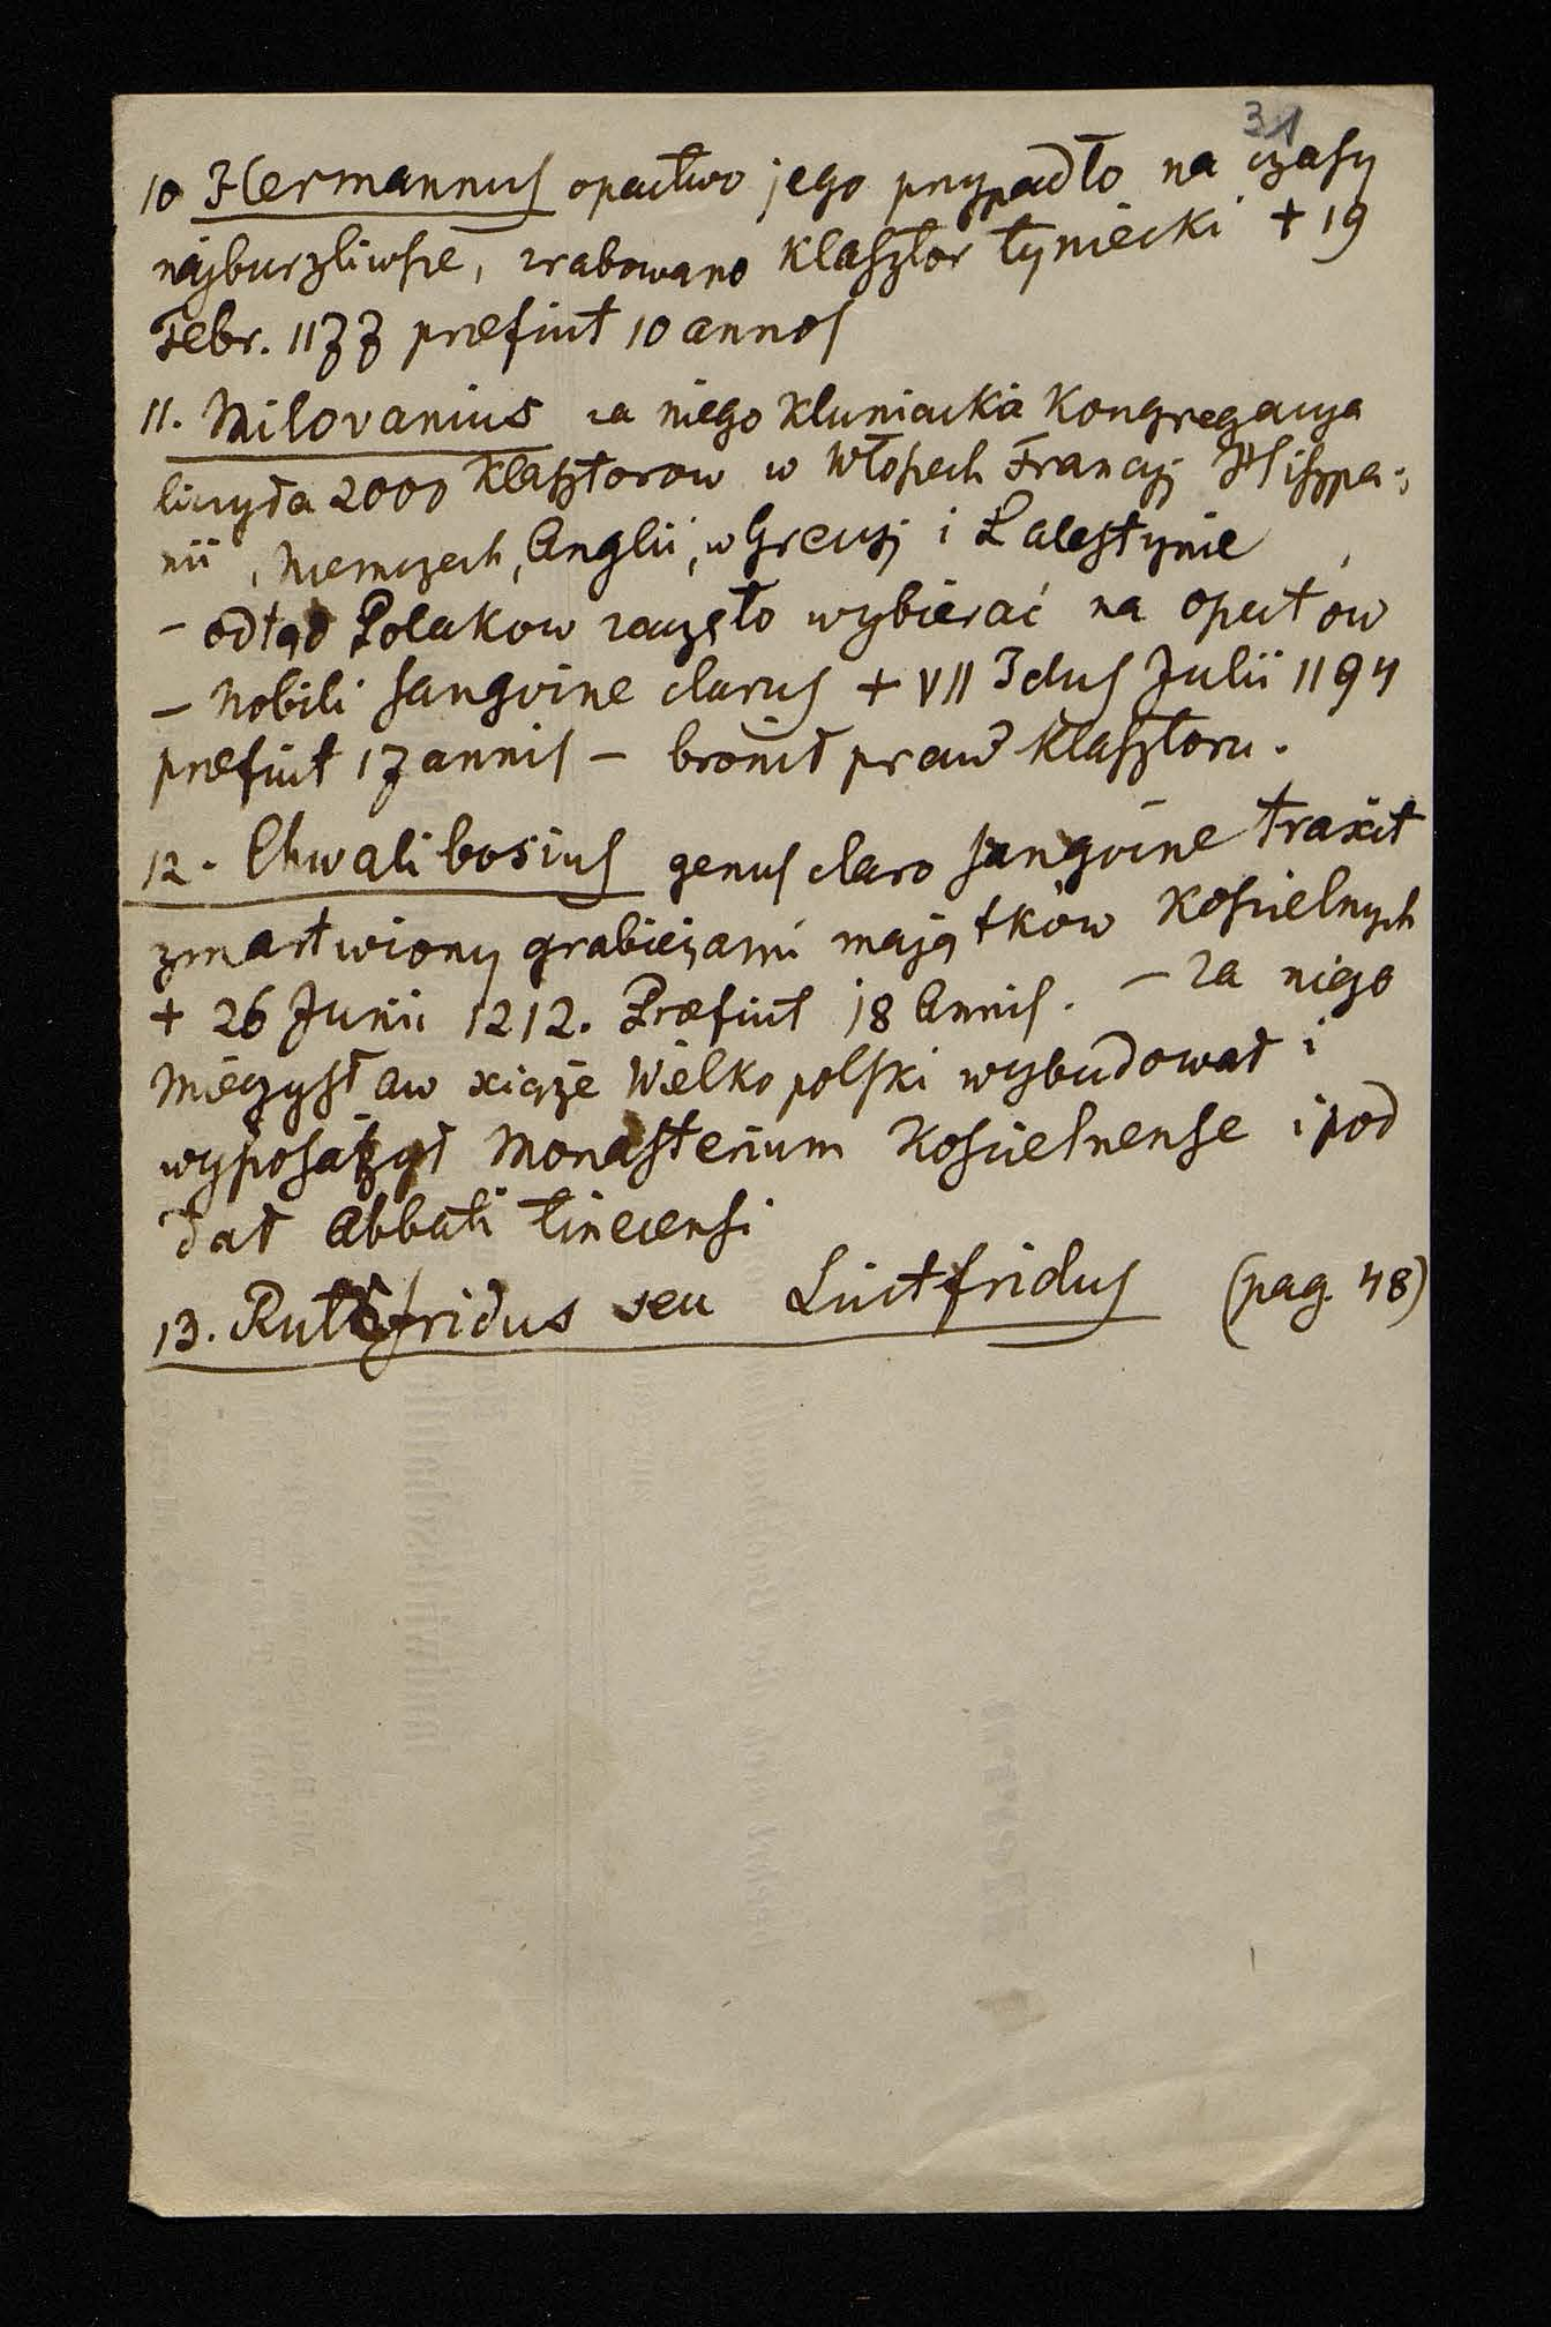 31
10 Hermannus opactwo jego przypadło na czasy
najburzliwsze, zrabowano Klasztor tyniecki + 19
Febr. 1177 præfuit 10 annos
11. Milovanius za niego Kluniacka Kongregacya
liczyła 2000 Klasztorow w Włoszech Francyj Hiszpa-
nii, Niemczech, Anglii, w Grecyj i Palestynie
- odtąd Polakow zaczęto wybierać na opatów
- Nobili sangvine clarus + VII Idus Julii 1194
præfuit 17 annis - bronił praw Klasztoru.
12. Chwalibosius genus claro sangvine traxit
zmartwiony grabieżami majątków Kościelnych
+ 26 Junii 1212. Præfuit 18 Annis. - za niego
Mieczysław xiąże Wielkopolski wybudował i
wyposażył Monasterium Koscielnense i pod
dał Abbati tinecensi
13. Rutfridus seu Luitfridus (pag. 48)